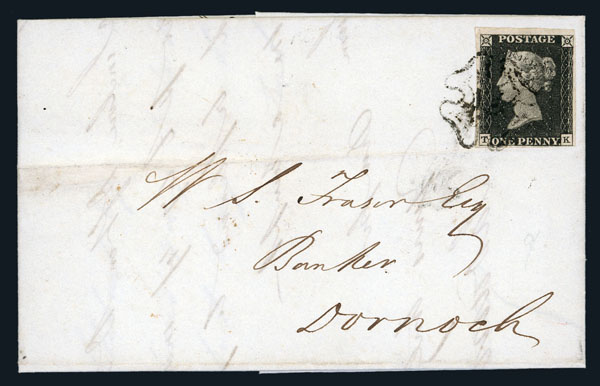 POSTAGE
T ONE PENNY K
W. S. Fraser Esq
Banker
Dornoch